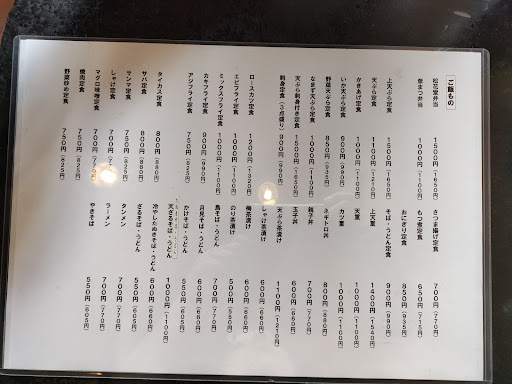 ご飯もの
松花堂弁当 1500円(1650円)
1000円(1100円)
上天ぷら定食 1500円(1650円)
天ぷら定食 1100円(1210円)
かきあげ定食 1000円(1100円)
いか天ぷら定食 900円(990円)
野菜天ぷら定食 850円(935円)
なまず天ぷら定食 1000円(1100円)
天ぷら刺身付き定食 1500円(1650円)
刺身定食(3点盛り) 900円(990円)
ロースカツ定食 1200円(1320円)
エビフライ定食 1000円(1100円)
ミックスフライ定食 1000円(1100円)
カキフライ定食 900円(990円)
アジフライ定食 750円(825円)
タイカス定食 800円(880円)
サバ定食 800円(880円)
サンマ定食 750円(825円)
しゃけ定食 700円(770円)
マグロ味噌定食 700円(770円)
焼肉定食 750円(825円)
野菜炒め定食 750円(825円)
さつま揚げ定食 700円(770円)
もつ煮定食 650円(715円)
おにぎり定食 850円(935円)
そば・うどん定食 900円(990円)
上天重 1400円(1540円)
天重 1000円(1100円)
カツ重 1000円(1100円)
ネギトロ丼 800円(880円)
親子丼 700円(770円)
玉子丼 600円(660円)
天ぷら茶漬け 1100円(1210円)
しゃけ茶漬け 600円(660円)
梅茶漬け 500円(550円)
のり茶漬け 500円(550円)
鳥そば・うどん 700円(770円)
月見そば・うどん 600円(660円)
かけそば・うどん 550円(605円)
天ざるそば・うどん 1000円(1100円)
冷やしたぬきそば・うどん 600円(660円)
ざるそば・うどん 600円(660円)
タンメン 700円(770円)
ラーメン 550円(605円)
やきそば 550円(605円)